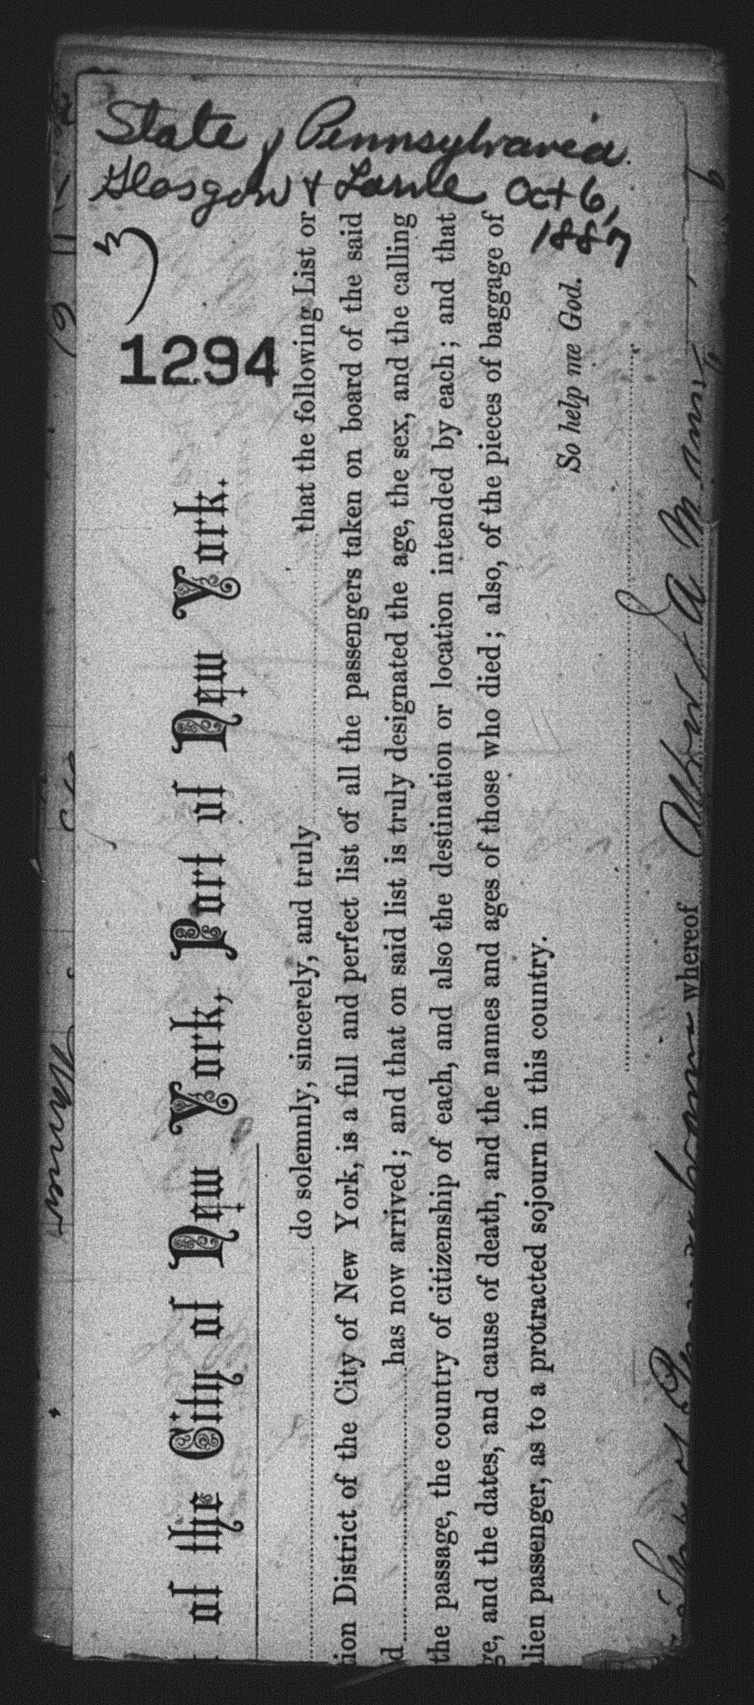 State of Pennsylvania
Glasgow & Larne Oct 6,
1887
3
1294
of the City of New York, Port of New York.
do solemnly, sincerely, and truly that the following List or
ion District of the City of New York, is a full and perfect list of all the passengers taken on board of the said
d has now arrived; and that on said list is truly designated the age, the sex, and the calling
the passage, the country of citizenship of each, and also the destination or location intended by each; and that
ge, and the dates, and cause of death, and the names and ages of those who died; also, of the pieces of baggage of
lien passenger, as to a protracted sojourn in this country.
So help me God.
whereof A Mann